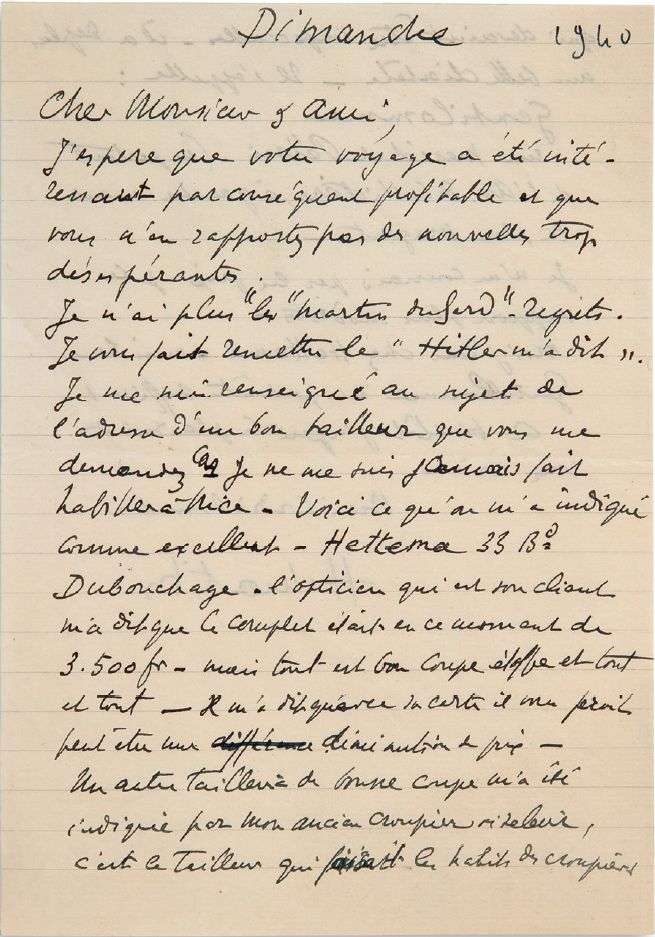 Dimanche 1940
Cher Monsieur & Ami,
J'espere que votre voyage a été inté-
ressant par conséquent profitable et que
vous n'en rapportez pas des nouvelles trop
désespérantes.
Je n'ai plus "les "Martin du Gard" - regrets.
Je vous fait remettre le "Hitler m'a dit".
Je me suis renseigné au sujet de
l'adresse d'un bon tailleur que vous me
demandez car je ne me suis jamais fait
habiller à Nice - Voici ce qu'on m'a indiqué
comme excellent - Hettema 33 Bd
Dubouchage. l'opticien qui est son client
m'a dit que le complet était en ce moment de
3.500 fr - mais tout est bon coupe étoffe et tout
et tout - Il m'a dit qu'avec sa carte il vous ferait
peut être une différence diminution de prix -
Un autre tailleur de bonne coupe m'a été
indiqué par mon ancien croupier
c'est le tailleur qui faisait les habits des croupiers